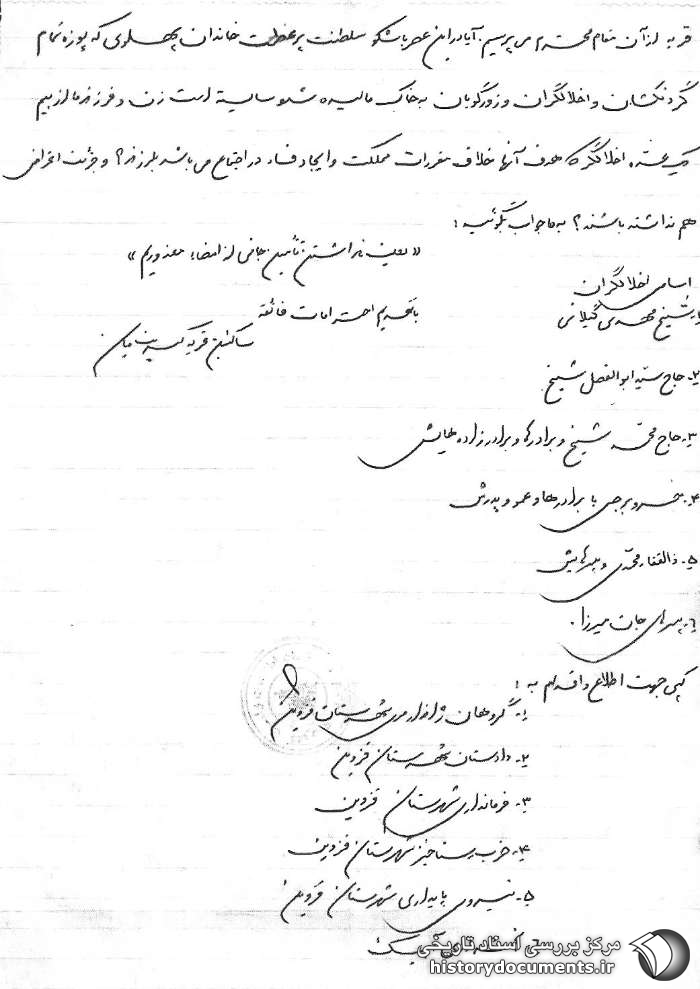 قربه از آن مقام محترم می پرسیم: آیا در این عصر باشکوه سلطنت پر عظمت خاندان پهلوی که پوزه تمام
گردنکشان و اخلالگران و زورگویان به خاک مالیده شده سالیته است زن و فرزند ما از بیم
یک عده اخلالگر که هدف آنها خلاف مقررات مملکت و ایجاد فساد در اجتماع می باشد بلرزند؟ و جرئت اعتراض
هم نداشته باشند؟ به ما جواب بگوئید:
«بعلت نداشتن تأمین جانی از امضاء معذوریم»
اسامی اخلالگران
با تقدیم احترامات فائقه
۱- شیخ مهدی گیلانی
ساکنین قریه
۲- حاج سید ابوالفضل شیخ
۳- حاج محمد شیخ و برادرها و برادرزاده هایش
۴- خسرو برجی با برادرها و عمو و پدرش
۵- ذالفقار محمدی و پسرهایش
۶- پسرهای جات میرزا.
کپی جهت اطلاع و اقدام به:
۱- گروهان ژاندارمری شهرستان قزوین
۲- دادستان شهرستان قزوین
۳- فرمانداری شهرستان قزوین
۴- حزب رستاخیز شهرستان قزوین
۵- نیروی پایداری شهرستان قزوین
آبیک
مرکز بررسی اسناد تاریخی
historydocuments.ir